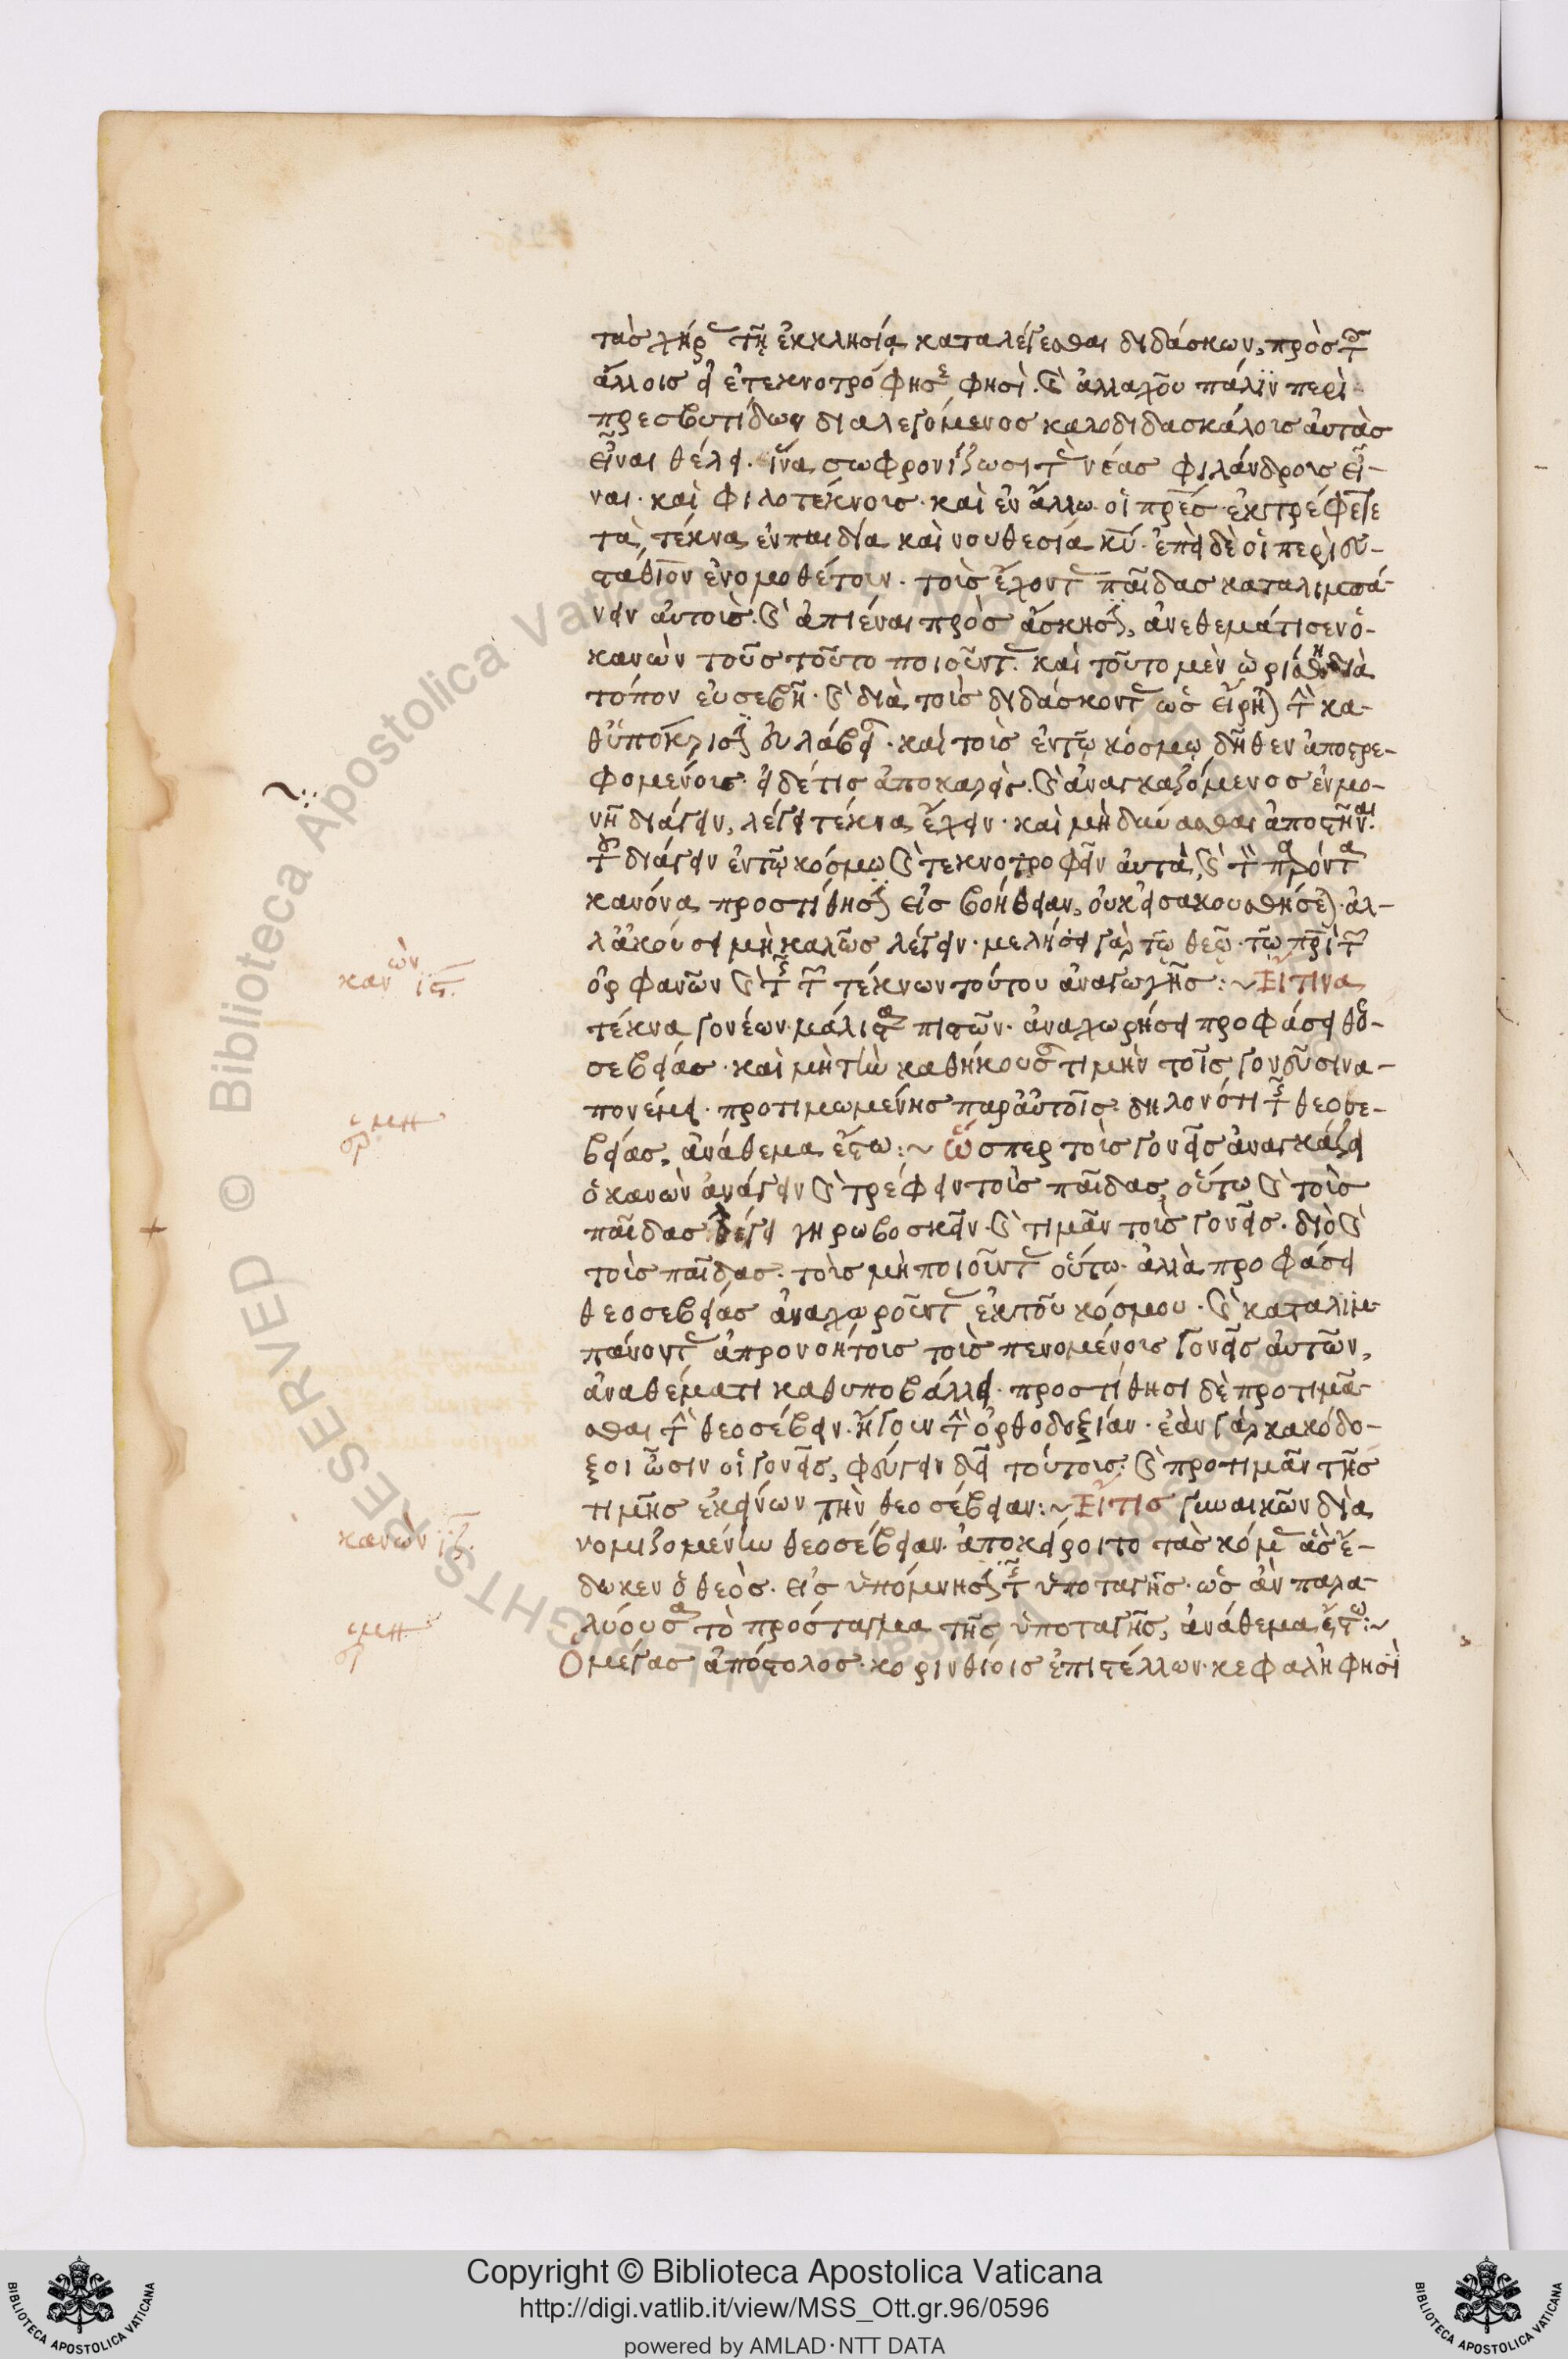 τὰς χήρας τῇ ἐκκλησίᾳ καταλέγεσθαι διδάσκων, πρὸς τοῖς
ἄλλοις εἰ ἐτεκνοτρόφησε φησί. καὶ ἀλλαχοῦ πάλιν περὶ
πρεσβυτίδων διαλεγόμενος καλοδιδασκάλους αὐτὰς
εἶναι θέλει. ἵνα σωφρονίζωσι τὰς νέας φιλάνδρους εἶ-
ναι. καὶ φιλοτέκνους. καὶ ἐν ἄλλω. οἱ πρες ἐκτρέφετε
τὰ τέκνα ἐν παιδία καὶ νουθεσία κυ. ἐπεὶ δὲ οἱ περὶ εὐ-
στάθιον ἐνομοθέτουν. τοὺς ἔχοντας παῖδας καταλιμπά-
νειν αὐτοὺς. καὶ ἀπιέναι πρὸς ἄσκησιν, ἀνεθεμάτισεν ὁ
κανὼν τοὺς τοῦτο ποιοῦντας. καὶ τοῦτο μὲν ὡρίσθη διὰ
τόπον εὐσεβῆ. καὶ διὰ τοὺς διδάσκοντας ὡς εἴρηται τὴν κα-
θ' ὑπόκρισιν εὐλάβειαν. καὶ τοὺς ἐν τῷ κόσμῳ δῆθεν ἀποστρε-
φομένους. εἰ δέ τις ἀποκαρεὶς. καὶ ἀναγκαζόμενος ἐν μο-
νῇ διάγειν, λέγει τέκνα ἔχειν. καὶ μὴ δύνασθαι ἀποστῆναι.
τοῦ διάγειν ἐν τῷ κόσμω καὶ τεκνοτροφεῖν αὐτὰ, καὶ τὸν παρόντα
κανόνα προστίθησιν εἰς βοήθειαν, οὐκ εἰσακουσθήσεται. ἀλ-
λ' ἀκούσει μὴ καλῶς λέγειν. μελήσει γὰρ τῶ θεῶ. τῶ πρὶ τῶν
ὀρφανῶν καὶ τῆς τῶν τέκνων τούτου ἀναγωγῆς :~ Εἴ τινα
τέκνα γονέων μάλιστα πιστῶν. ἀναχωρήσει προφάσει θεο-
σεβείας. καὶ μὴ τὴν καθήκουσαν τιμὴν τοῖς γονεῦσιν ἀ-
πονέμει. προτιμωμένης παρ' αὐτοῖς δηλονότι τῆς θεοσε-
βείας, ἀνάθεμα ἔστω :~ Ὥσπερ τοὺς γονεῖς ἀναγκάζει
ὁ κανὼν ἀνάγειν καὶ τρέφειν τοὺς παῖδας, οὕτω καὶ τοὺς
παῖδας λέγει γηρωβοσκεῖν. καὶ τιμᾶν τοὺς γονεῖς. διὸ καὶ
τοὺς παῖδας. τοὺς μὴ ποιοῦντας οὕτω. ἀλλὰ προφάσει
θεοσεβείας ἀναχωροῦντας ἐκ τοῦ κόσμου. καὶ καταλιμ-
πάνοντας ἀπρονοήτους τοὺς πενομένους γονεῖς αὐτῶν,
ἀναθέματι καθυποβάλλει. προστίθησι δὲ προτιμᾶ-
σθαι τὴν θεοσέβειαν. ἤγουν τὴν ὀρθοδοξίαν. ἐὰν γὰρ κακόδο-
ξοι ὦσιν οἱ γονεῖς, φεύγειν δεῖ τούτους. καὶ προτιμᾶν τῆς
τιμῆς ἐκείνων τὴν θεοσέβειαν :~ Εἴ τις γυναικῶν διὰ
νομιζομένην θεοσέβειαν. ἀποκείροιτο τὰς κόμας ἃς ἔ-
δωκεν ὁ θεὸς. εἰς ὑπόμνησιν τῆς ὑποταγῆς. ὡς ἂν παρα-
λύουσα τὸ πρόσταγμα τῆς ὑποταγῆς, ἀνάθεμα ἔστω :~
Ὁ μέγας ἀπόστολος. κορινθίοις ἐπιστέλλων. κεφαλὴ φησὶ
κανὼν ις.
ἑρμη
κανὼν ιζ.
ἑρμη
Copyright © Biblioteca Apostolica Vaticana
http://digi.vatlib.it/view/MSS_Ott.gr.96/0596
powered by AMLAD·NTT DATA
BIBLIOTECA APOSTOLICA VATICANA
BIBLIOTECA APOSTOLICA VATICANA
© Biblioteca Apostolica Vaticana
ALL RIGHTS RESERVED